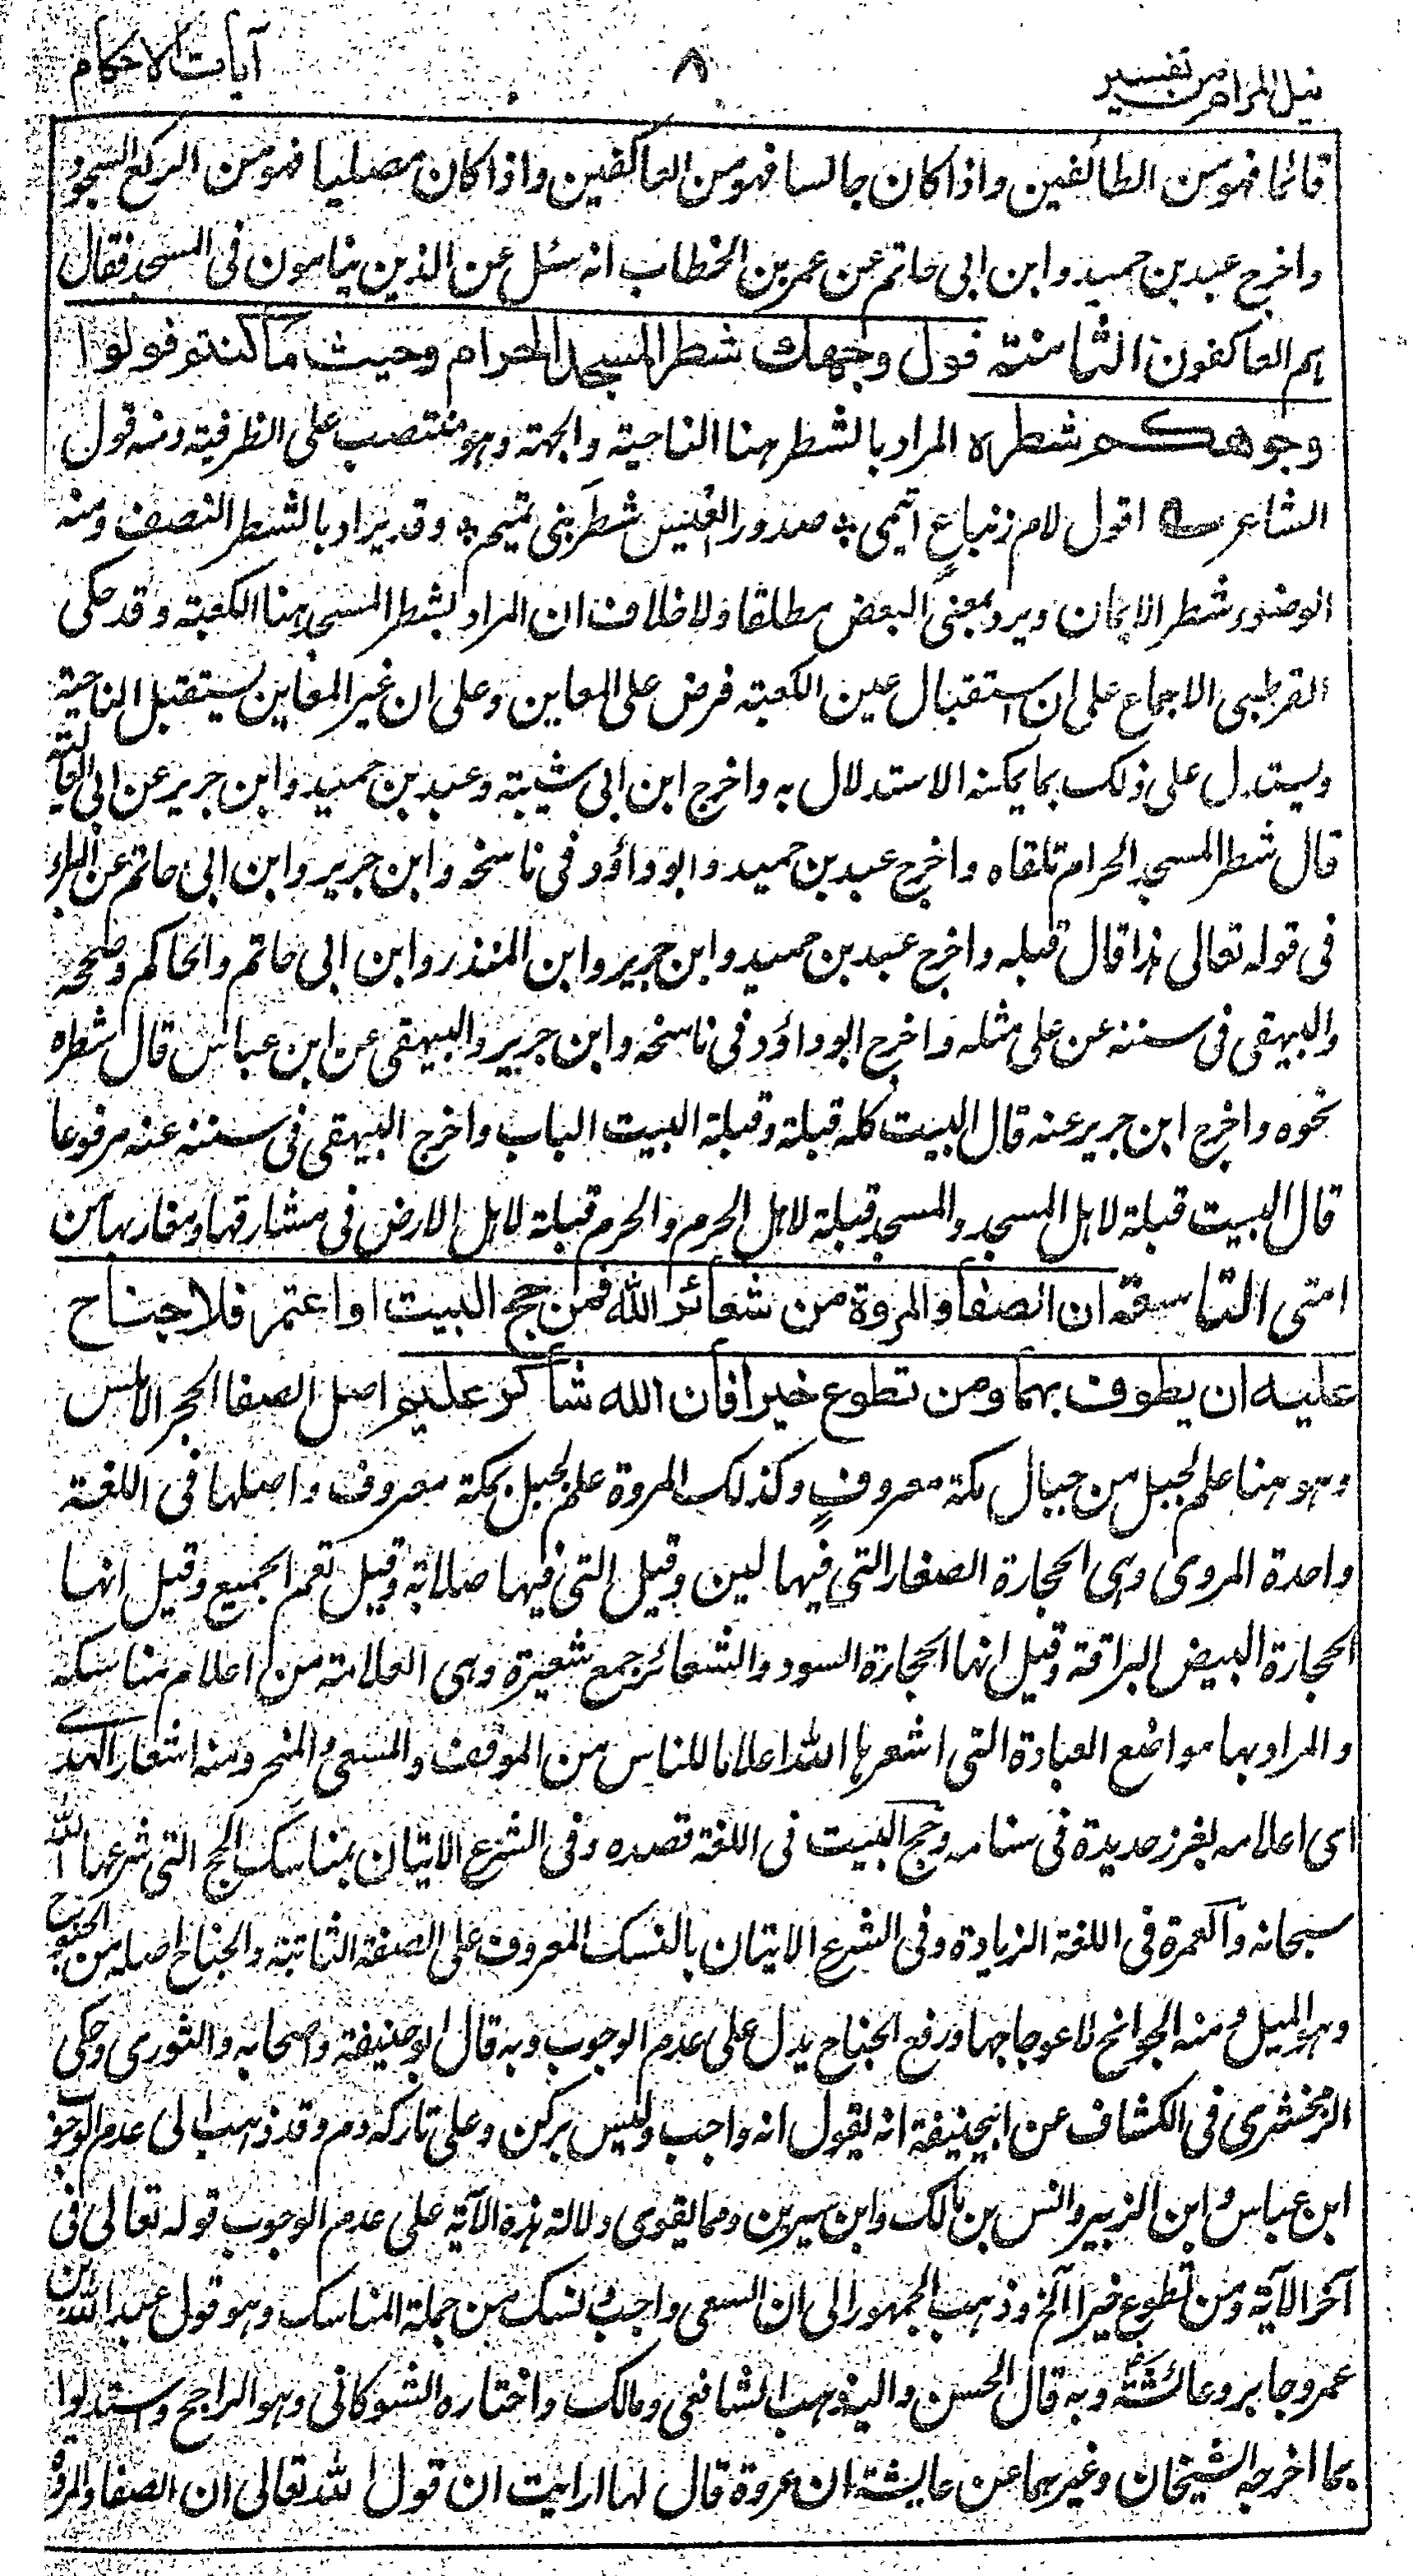 نيل المرام من تفسير
٨
آيات الاحكام
قائما فهو من الطائفين واذا كان جالسا فهو من العاكفين واذا كان مصليا فهو من الركع السجود
واخرج عبد بن حميد وابن ابى حاتم عن عمر بن الخطاب انه سئل عن الذين ينامون فى المسجد فقال
هم العاكفون الثامنة فول وجهك شطر المسجد الحرام وحيث ما كنتم فولوا
وجوهكم شطره المراد بالشطر هنا الناحية والجهة وهو منتصب على الظرفية ومنه قول
الشاعر اقول لام زنباعٍ اقيمى ؞ صدور العيس شطر بنى تميم ؞ وقد يراد بالشطر النصف ومنه
الوضوء شطر الايمان ويرد بمعنى البعض مطلقا ولا خلاف ان المراد بشطر المسجد هنا الكعبة وقد حكى
القرطبى الاجماع على ان استقبال عين الكعبة فرض على المعاين وعلى ان غير المعاين يستقبل الناحية
ويستدل على ذلك بما يمكنه الاستدلال به واخرج ابن ابى شيبة وعبد بن حميد وابن جرير عن ابى العالية
قال شطر المسجد الحرام تلقاه واخرج عبد بن حميد وابو داؤد فى ناسخه وابن جرير وابن ابى حاتم عن البراء
فى قوله تعالى هذا قال قبله واخرج عبد بن حميد وابن جرير وابن المنذر وابن ابى حاتم والحاكم وصححه
والبيهقى فى سننه عن على مثله واخرج ابو داؤد فى ناسخه وابن جرير والبيهقى عن ابن عباس قال شطره
نحوه واخرج ابن جرير عنه قال البيت كله قبلة وقبلة البيت الباب واخرج البيهقى فى سننه عنه مرفوعا
قال البيت قبلة لاهل المسجد والمسجد قبلة لاهل الحرم والحرم قبلة لاهل الارض فى مشارقها ومغاربها من
امتى التاسعة ان الصفا والمروة من شعائر الله فمن حج البيت او اعتمر فلا جناح
عليه ان يطوف بهما ومن تطوع خيرا فان الله شاكر عليم اصل الصفا الحجر الاملس
وهو هنا علم لجبل من جبال مكة معروفٍ وكذلك المروة علم لجبل بمكة معروف واصلها فى اللغة
واحدة المروى وهى الحجارة الصغار التى فيها لين وقيل التى فيها صلابة وقيل تعم الجميع وقيل انها
الحجارة البيض البراقة وقيل انها الحجارة السود والشعائر جمع شعيرة وهى العلامة من اعلام مناسكه
والمراد بها مواضع العبادة التى اشعرها الله اعلاما للناس من الموقف والمسعى والمنحر ومنه اشعار الهدى
اى اعلامه بغرز حديدة فى سنامه وحج البيت فى اللغة قصده وفى الشرع الاتيان بمناسك الحج التى شرعها الله
سبحانه والعمرة فى اللغة الزيادة وفى الشرع الاتيان بالنسك المعروف على الصفة الثابتة والجناح اصله من الجنوح
وهو الميل ومنه الجوانح لاعوجاجها ورفع الجناح يدل على عدم الوجوب وبه قال ابو حنيفة واصحابه والثورى وحكى
الزمخشرى فى الكشاف عن ابيحنيفة انه يقول انه واجب وليس بركن وعلى تاركه دم وقد ذهب الى عدم الوجوب
ابن عباس وابن الزبير وانس بن مالك وابن سيرين ومما يقوى دلالة هذه الآية على عدم الوجوب قوله تعالى فى
آخر الآية ومن تطوع خيرا الخ وذهب الجمهور الى ان السعى واجب ونسك من جملة المناسك وهو قول عبد الله بن
عمر وجابر وعائشة وبه قال الحسن واليه ذهب الشافعى ومالك واختاره الشوكانى وهو الراجح واستدلوا
بما اخرجه الشيخان وغيرهما عن عايشة ان عروة قال لها ارايت ان قول الله تعالى ان الصفا والمروة